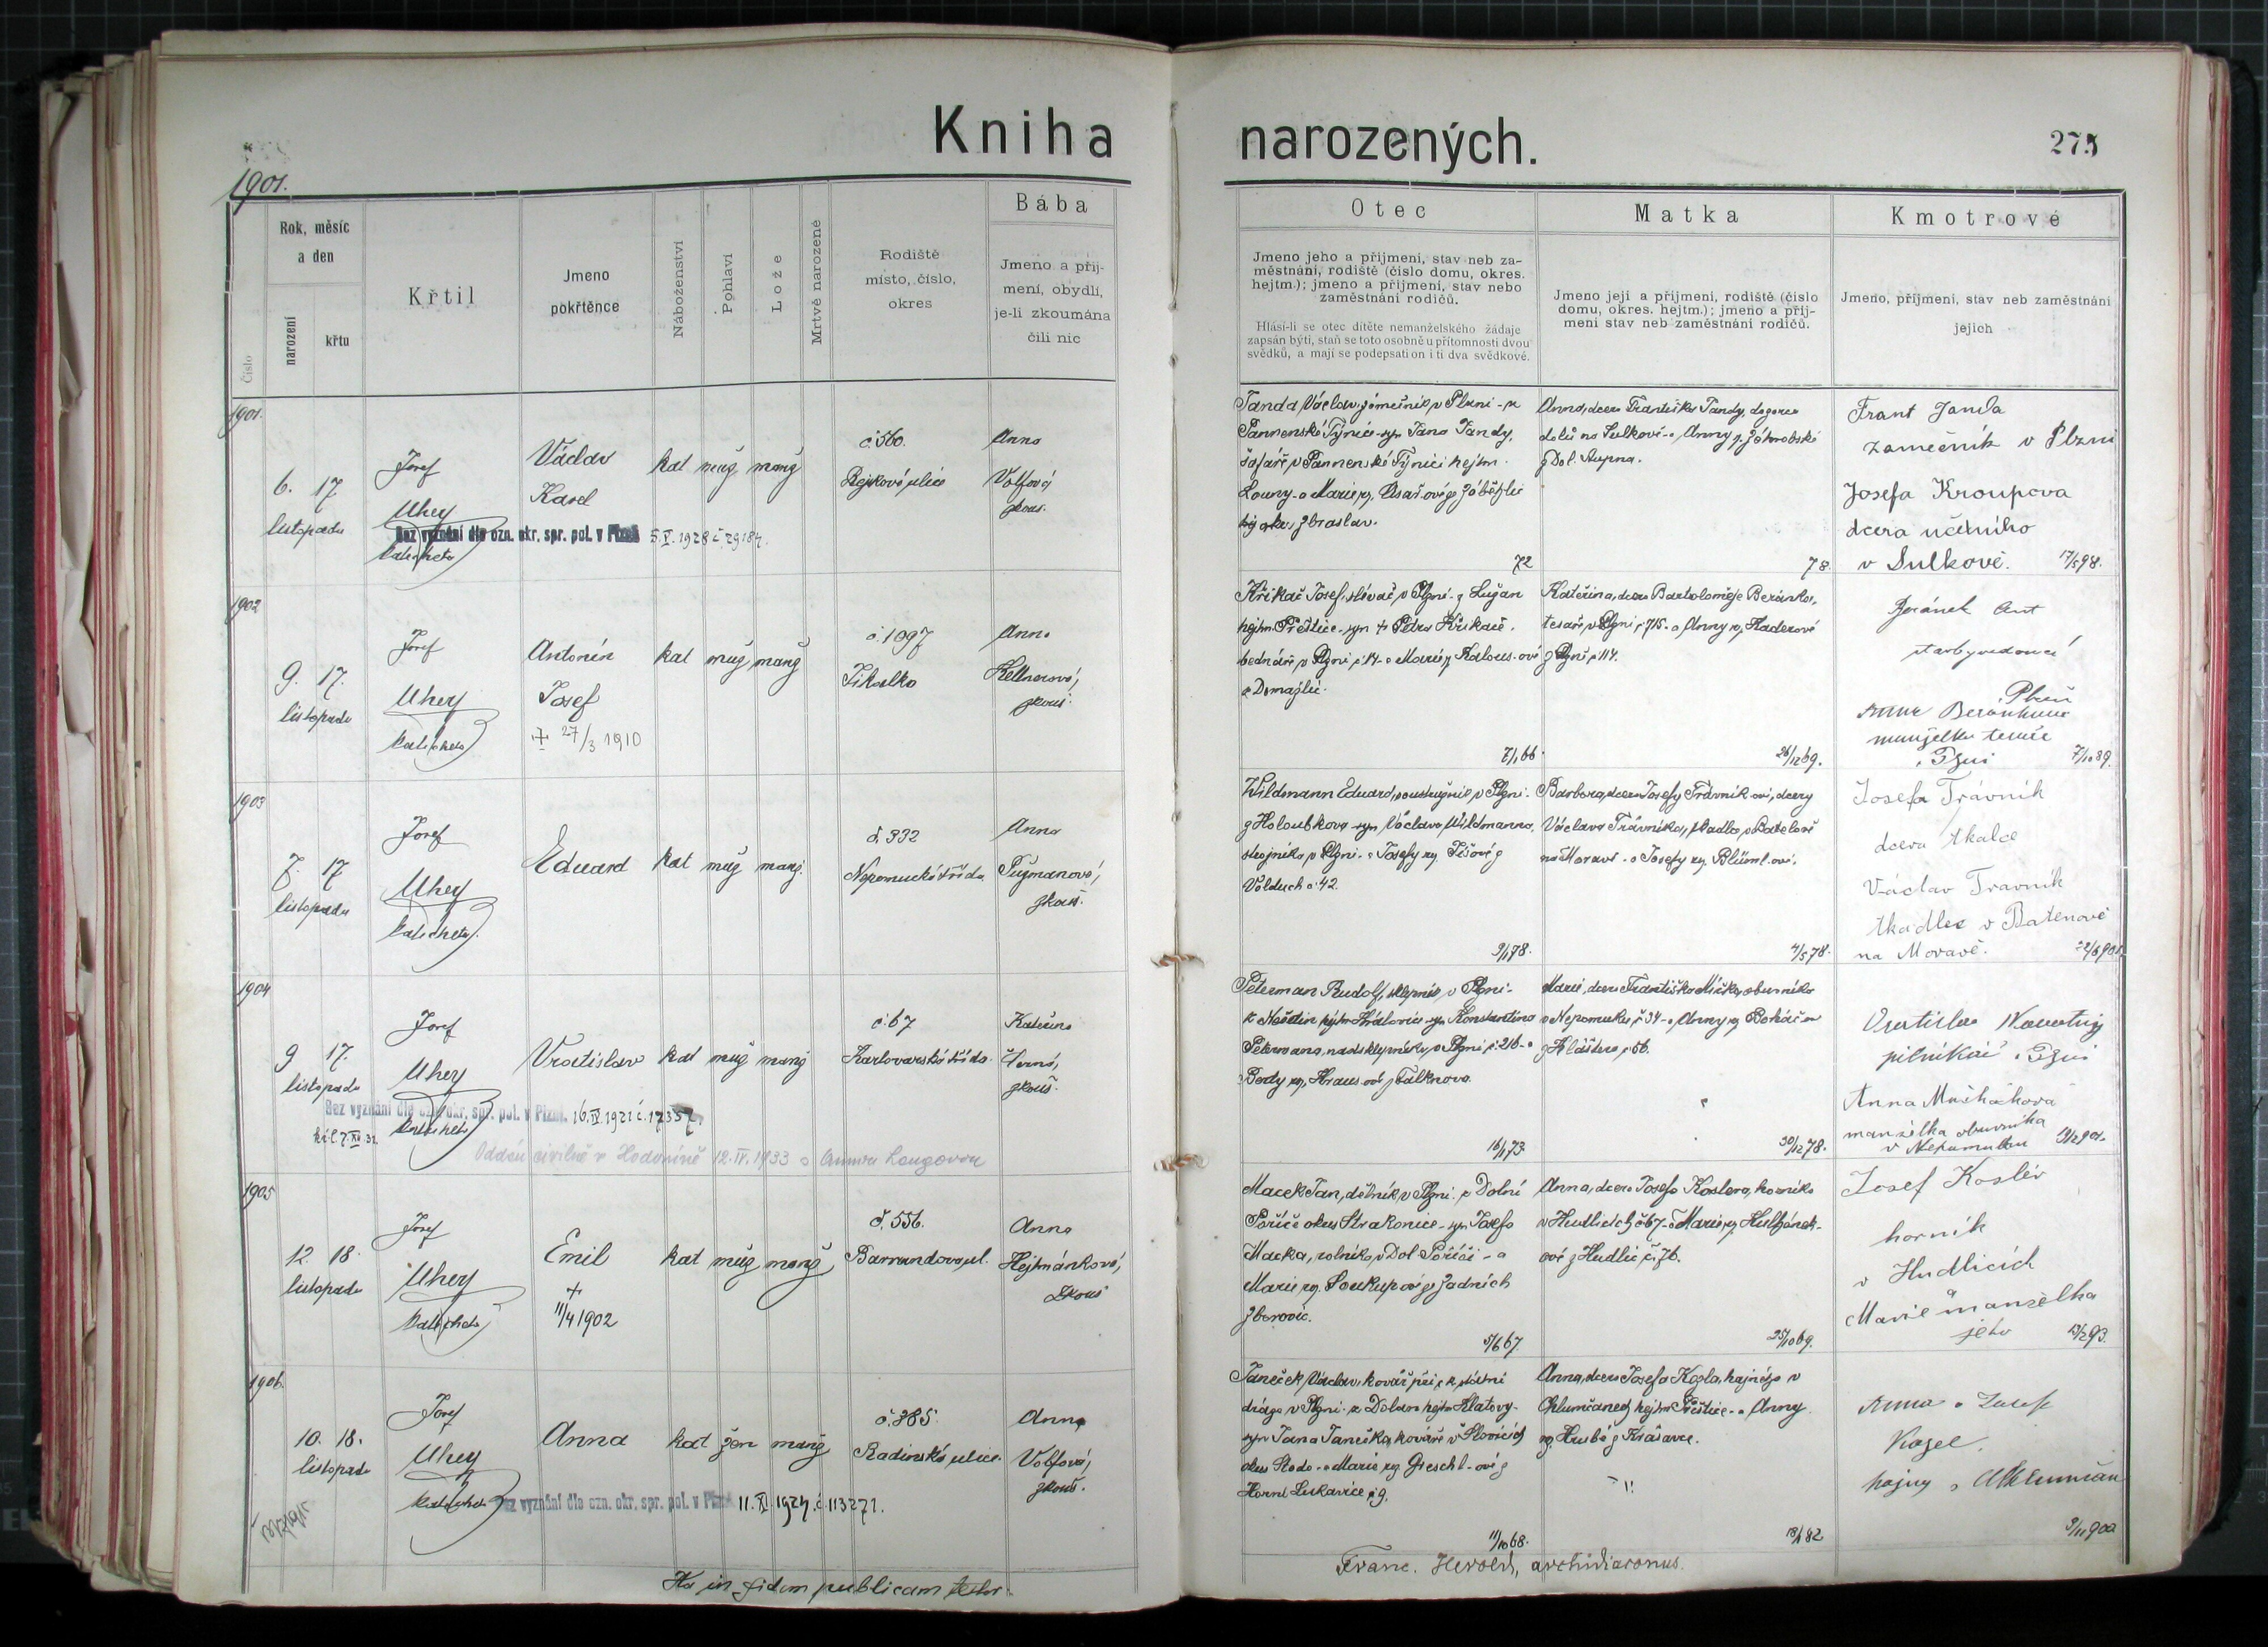 Kniha narozených.
275
1901.
Číslo
Rok, měsíc
a den
narození
křtu
Křtil
Jmeno
pokřtěnce
Náboženství
Pohlaví
Lože
Mrtvě narozené
Rodiště
místo, číslo,
okres
Bába
Jmeno a příj-
mení, obydlí,
je-li zkoumána
čili nic
Otec
Jmeno jeho a příjmení, stav neb za-
městnání, rodiště (číslo domu, okres.
hejtm.); jmeno a příjmení, stav nebo
zaměstnání rodičů.
Hlásí-li se otec dítěte nemanželského žádaje
zapsán býti, staň se toto osobně u přítomnosti dvou
svědků, a mají se podepsati on i ti dva svědkové.
Matka
Jmeno její a příjmení, rodiště (číslo
domu, okres. hejtm.); jmeno a příj-
mení stav neb zaměstnání rodičů.
Kmotrové
Jmeno, příjmení, stav neb zaměstnání
jejich
1901.
6. 17
listopadu
Josef
Uhey
katecheta
Václav
Karel
kat muž manž
č 560.
Rejskova ulice
Anna
Volfová
zkouš.
Bez vyznání dle ozn. okr. spr. pol. v Plzni
Janda Václav, zámečník v Plzni - z
Pannenské Týnice - syn Jana Jandy,
šafáře v Pannenské Týnici hejtm.
Louny - a Marie
Zbraslav.
72
Anna, dcera Františka Jandy,
dolů na Sulkově - a Anny
z Dol.
78.
Frant Janda
zámečník v Plzni
Josefa Kroupova
dcera učetního
v Sulkově. 17/5 98.
1902
9. 17.
listopadu
Josef
Uhey
katecheta
Antonín
Josef
+ 27/3 1910
kat muž manž
č. 1097
Jikalka
Anna
Kellnerová,
zkouš.
Křikač Josef, slévač v Plzni - z Lužan
hejtm. Přeštice - syn + Petra Křikače,
bednáře v Plzni č 14 - a Marie r. Kalous-ové
z Domažlic.
7/1 66.
Kateřina, dcera Bartoloměje Beránka,
tesaře v Plzni č 715 - a Anny r. Kaderové
z Plzně č 114.
26/12 69.
Beránek Ant
stavbyvedoucí
Plzeň
manželka tesaře
v Plzni 7/10 89.
1903
7. 17
listopadu
Josef
Uhey
katecheta
Eduard
kat muž manž.
č. 332
Nepomucká třída
Anna
Tugmanová,
zkouš.
Wildmann Eduard, soustružník v Plzni -
z Holoubkova - syn Václava Wildmanna,
strojníka v Plzni - a Josefy
Volduch č. 42.
9/1 78.
Barbora, dcera Josefy Trávník-ové, dcery
Václava Trávníka, tkadlce v Batelově
na Moravě - a Josefy roz. Blüml-ové.
4/5 78.
Josefa Trávník
dcera tkalce
Václav Travník
tkadlec v Batenově
na Moravě. 22/6 901.
1904
9 17.
listopadu
Josef
Uhey
katecheta
Vratislav
kat muž manž
č. 67
Karlovarská třída
Kateřina
Černá,
zkouš.
Bez vyznání dle ozn. okr. spr. pol. v Plzni. 16.IV.1921 č. 17357.
Oddán civilně v Hodoníně 12.IV.1933 s Annou Langovou
Peterman Rudolf, sklepník v Plzni -
hejtm. Kralovice - syn Konstantina
Petermana, nadsklepníka v Plzni č. 216 - a
Berty roz. Kraus-ové z Falknova.
16/1 73.
Marie, dcera Františka Míčky, obuvníka
v Nepomuku č 34 - a Anny
z Kláštera č. 56.
30/12 78.
pilníkář v Plzni
Anna
manželka obuvníka
v Nepomuku
1905
12. 18.
listopadu
Josef
Uhey
katecheta
Emil
+
11/4 1902
kat muž manž
č. 556.
Barrandova ul.
Anna
Hejtmánková,
zkouš
Macek Jan, dělník v Plzni - z Dolní
Poříčí okres Strakonice - syn Josefa
Macka, rolníka v Dol. Poříčí - a
Marie roz. Soukup-ové z Zadních
Zborovic.
5/6 67.
Anna, dcera Josefa Koslera, horníka
v Hudlicích č 67 - a Marie
ové z Hudlic č. 76.
25/10 69.
Josef Koslér
horník
v Hudlicích
a
Marie manželka
jeho 13/2 93.
1906.
10. 18.
listopadu
Josef
Uhey
katecheta
Anna
kat žen manž
č. 385.
Radinská ulice
Anna
Volfová,
zkouš.
Bez vyznání dle ozn. okr. spr. pol. v Plzni 11.XI.1924 č. 113271.
Janeček Václav, kovář při c. k. státní
dráze v Plzni - z Dolan hejtm. Klatovy -
syn Jana Janečka, kováře v Slovicích
okres Stodo - a Marie roz. Greschl-ové z
Horní Lukavice č 9.
11/10 68.
Anna, dcera Josefa Kozla, hajného v
Chlumčanech hejtm. Přeštice - a Anny
roz. Hrubé z Krašovce.
18/1 82
Anna a Josef
Kozel
hajný v
9/11 900
Ita in fidem publicam testor
Franc. Herold, archidiaconus.